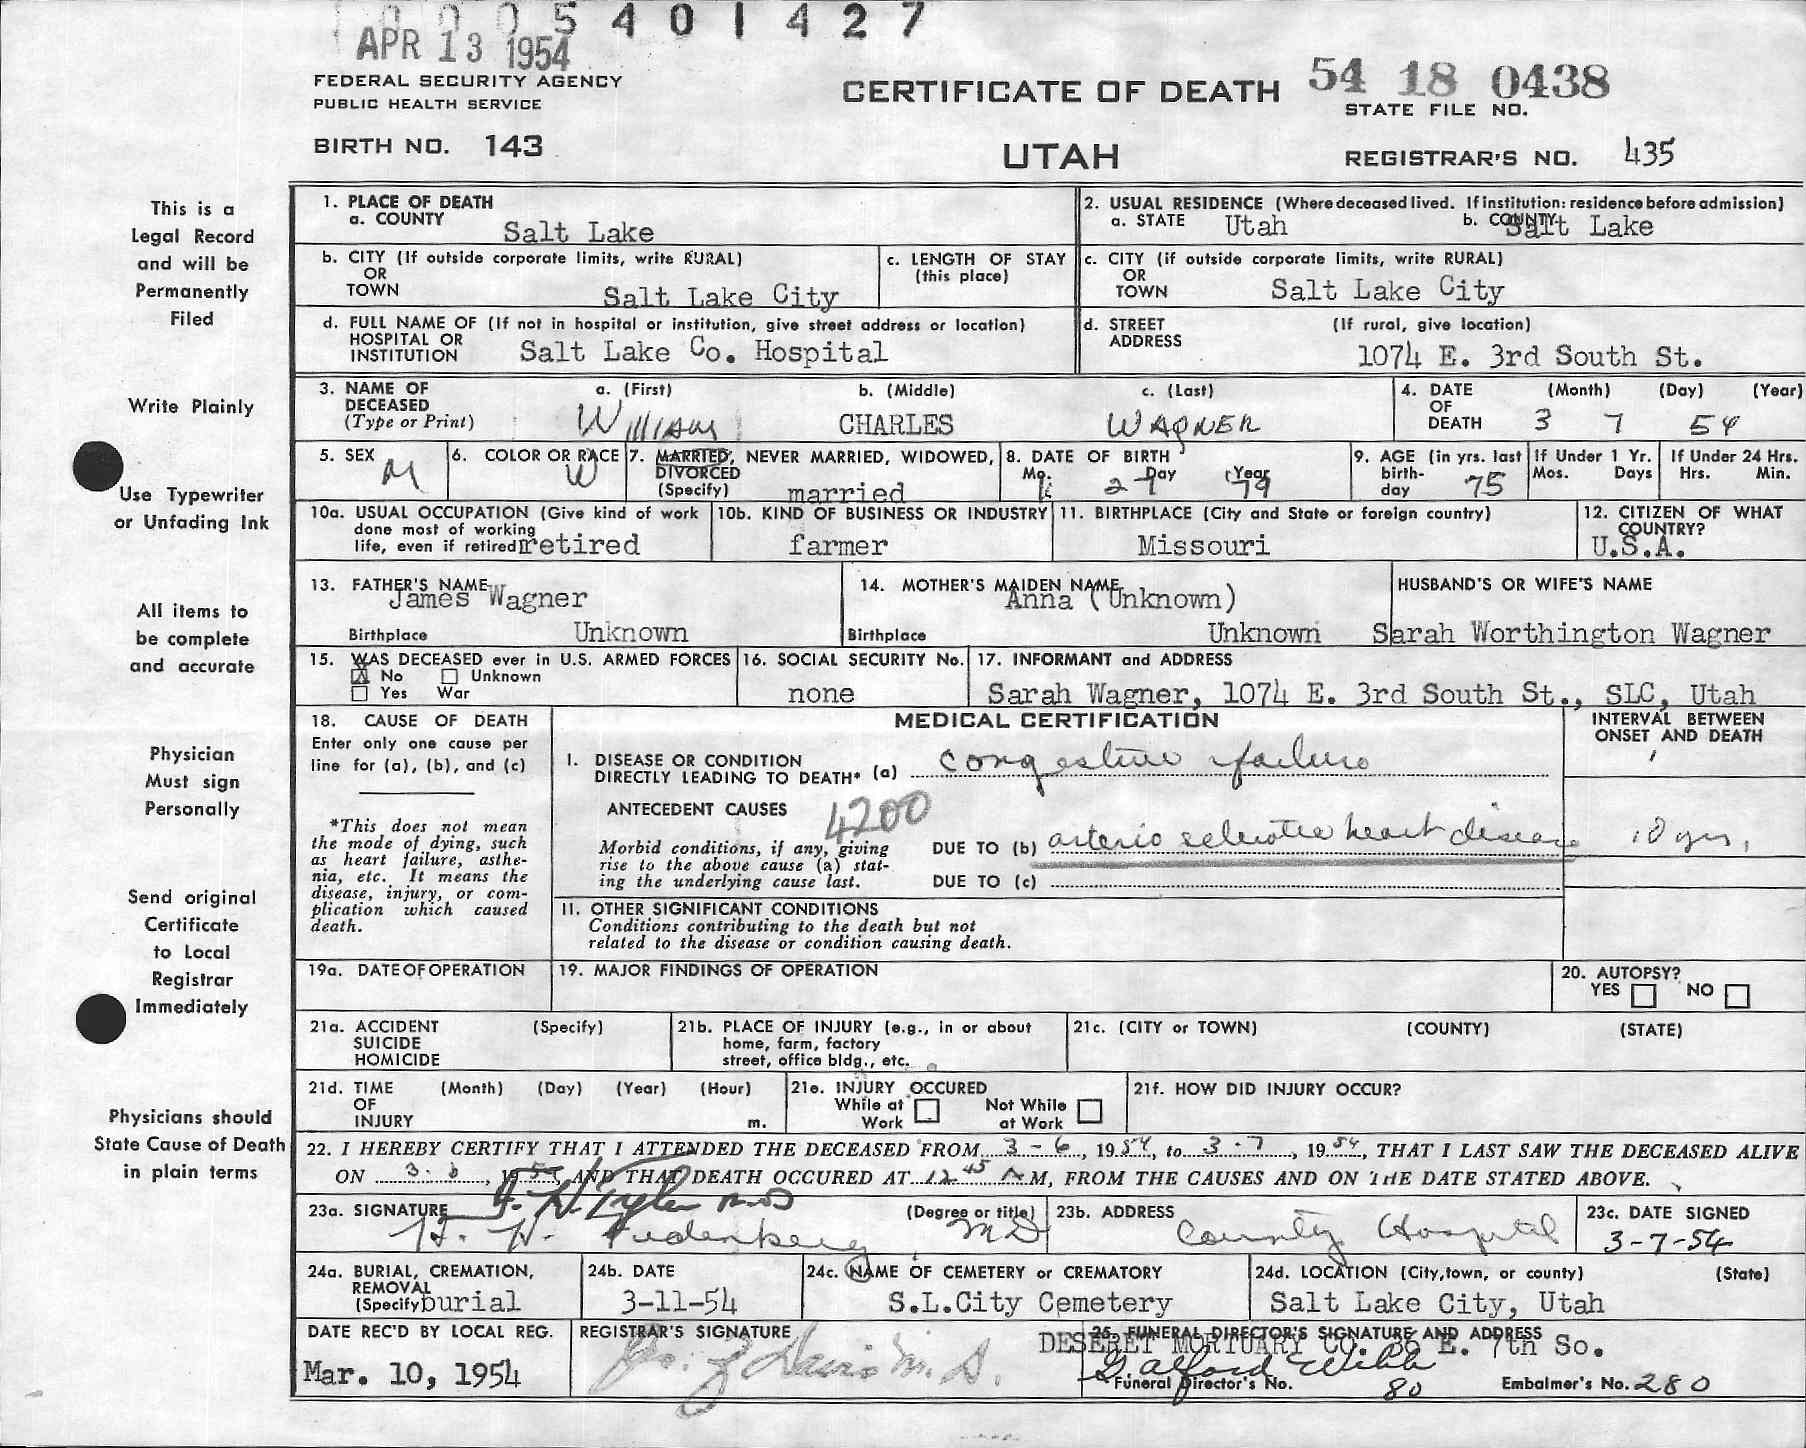 0005401427
APR 13 1954
FEDERAL SECURITY AGENCY
PUBLIC HEALTH SERVICE
BIRTH NO. 143
CERTIFICATE OF DEATH
UTAH
54 18 0438
STATE FILE NO.
REGISTRAR'S NO. 435
This is a
Legal Record
and will be
Permanently
Filed
Write Plainly
Use Typewriter
or Unfading Ink
All items to
be complete
and accurate
Physician
Must sign
Personally
Send original
Certificate
to Local
Registrar
Immediately
Physicians should
State Cause of Death
in plain terms
1. PLACE OF DEATH
a. COUNTY Salt Lake
2. USUAL RESIDENCE (Where deceased lived. If institution: residence before admission)
a. STATE Utah b. COUNTY Salt Lake
b. CITY (If outside corporate limits, write RURAL)
OR
TOWN Salt Lake City
c. LENGTH OF STAY
(this place)
c. CITY (if outside corporate limits, write RURAL)
OR
TOWN Salt Lake City
d. FULL NAME OF (If not in hospital or institution, give street address or location)
HOSPITAL OR
INSTITUTION Salt Lake Co. Hospital
d. STREET (If rural, give location)
ADDRESS
1074 E. 3rd South St.
3. NAME OF a. (First) b. (Middle) c. (Last)
DECEASED
(Type or Print) William CHARLES WAGNER
4. DATE (Month) (Day) (Year)
OF
DEATH 3 7 54
5. SEX M
6. COLOR OR RACE W
7. MARRIED, NEVER MARRIED, WIDOWED,
DIVORCED
(Specify) married
8. DATE OF BIRTH
Mo. Day Year
27 79
9. AGE (in yrs. last
birth-
day 75
If Under 1 Yr.
Mos. Days
If Under 24 Hrs.
Hrs. Min.
10a. USUAL OCCUPATION (Give kind of work
done most of working
life, even if retired) retired
10b. KIND OF BUSINESS OR INDUSTRY
farmer
11. BIRTHPLACE (City and State or foreign country)
Missouri
12. CITIZEN OF WHAT
COUNTRY?
U.S.A.
13. FATHER'S NAME
James Wagner
Birthplace Unknown
14. MOTHER'S MAIDEN NAME
Anna (Unknown)
Birthplace Unknown
HUSBAND'S OR WIFE'S NAME
Sarah Worthington Wagner
15. WAS DECEASED ever in U.S. ARMED FORCES
No Unknown
Yes War
16. SOCIAL SECURITY No.
none
17. INFORMANT and ADDRESS
Sarah Wagner, 1074 E. 3rd South St., SLC, Utah
18. CAUSE OF DEATH
Enter only one cause per
line for (a), (b), and (c)
*This does not mean
the mode of dying, such
as heart failure, asthe-
nia, etc. It means the
disease, injury, or com-
plication which caused
death.
MEDICAL CERTIFICATION
INTERVAL BETWEEN
ONSET AND DEATH
I. DISEASE OR CONDITION
DIRECTLY LEADING TO DEATH* (a) congestive failure
ANTECEDENT CAUSES 4200
Morbid conditions, if any, giving
rise to the above cause (a) stat-
ing the underlying cause last.
DUE TO (b) arterio sclerotic heart disease 10 yrs.
DUE TO (c)
II. OTHER SIGNIFICANT CONDITIONS
Conditions contributing to the death but not
related to the disease or condition causing death.
19a. DATE OF OPERATION
19. MAJOR FINDINGS OF OPERATION
20. AUTOPSY?
YES NO
21a. ACCIDENT (Specify)
SUICIDE
HOMICIDE
21b. PLACE OF INJURY (e.g., in or about
home, farm, factory
street, office bldg., etc.
21c. (CITY or TOWN) (COUNTY) (STATE)
21d. TIME (Month) (Day) (Year) (Hour)
OF
INJURY m.
21e. INJURY OCCURED
While at Not While
Work at Work
21f. HOW DID INJURY OCCUR?
22. I HEREBY CERTIFY THAT I ATTENDED THE DECEASED FROM 3-6, 1954, to 3-7, 1954, THAT I LAST SAW THE DECEASED ALIVE
ON 3-6, 1954, AND THAT DEATH OCCURED AT 12 45 A M, FROM THE CAUSES AND ON THE DATE STATED ABOVE.
23a. SIGNATURE (Degree or title)
H. H. MD
23b. ADDRESS
County Hospital
23c. DATE SIGNED
3-7-54
24a. BURIAL, CREMATION,
REMOVAL
(Specify) burial
24b. DATE
3-11-54
24c. NAME OF CEMETERY or CREMATORY
S.L.City Cemetery
24d. LOCATION (City, town, or county) (State)
Salt Lake City, Utah
DATE REC'D BY LOCAL REG.
Mar. 10, 1954
REGISTRAR'S SIGNATURE
Davis M.D.
25. FUNERAL DIRECTOR'S SIGNATURE AND ADDRESS
DESERET MORTUARY CO. 36 E. 7th So.
Webb
Funeral Director's No. 80 Embalmer's No. 280